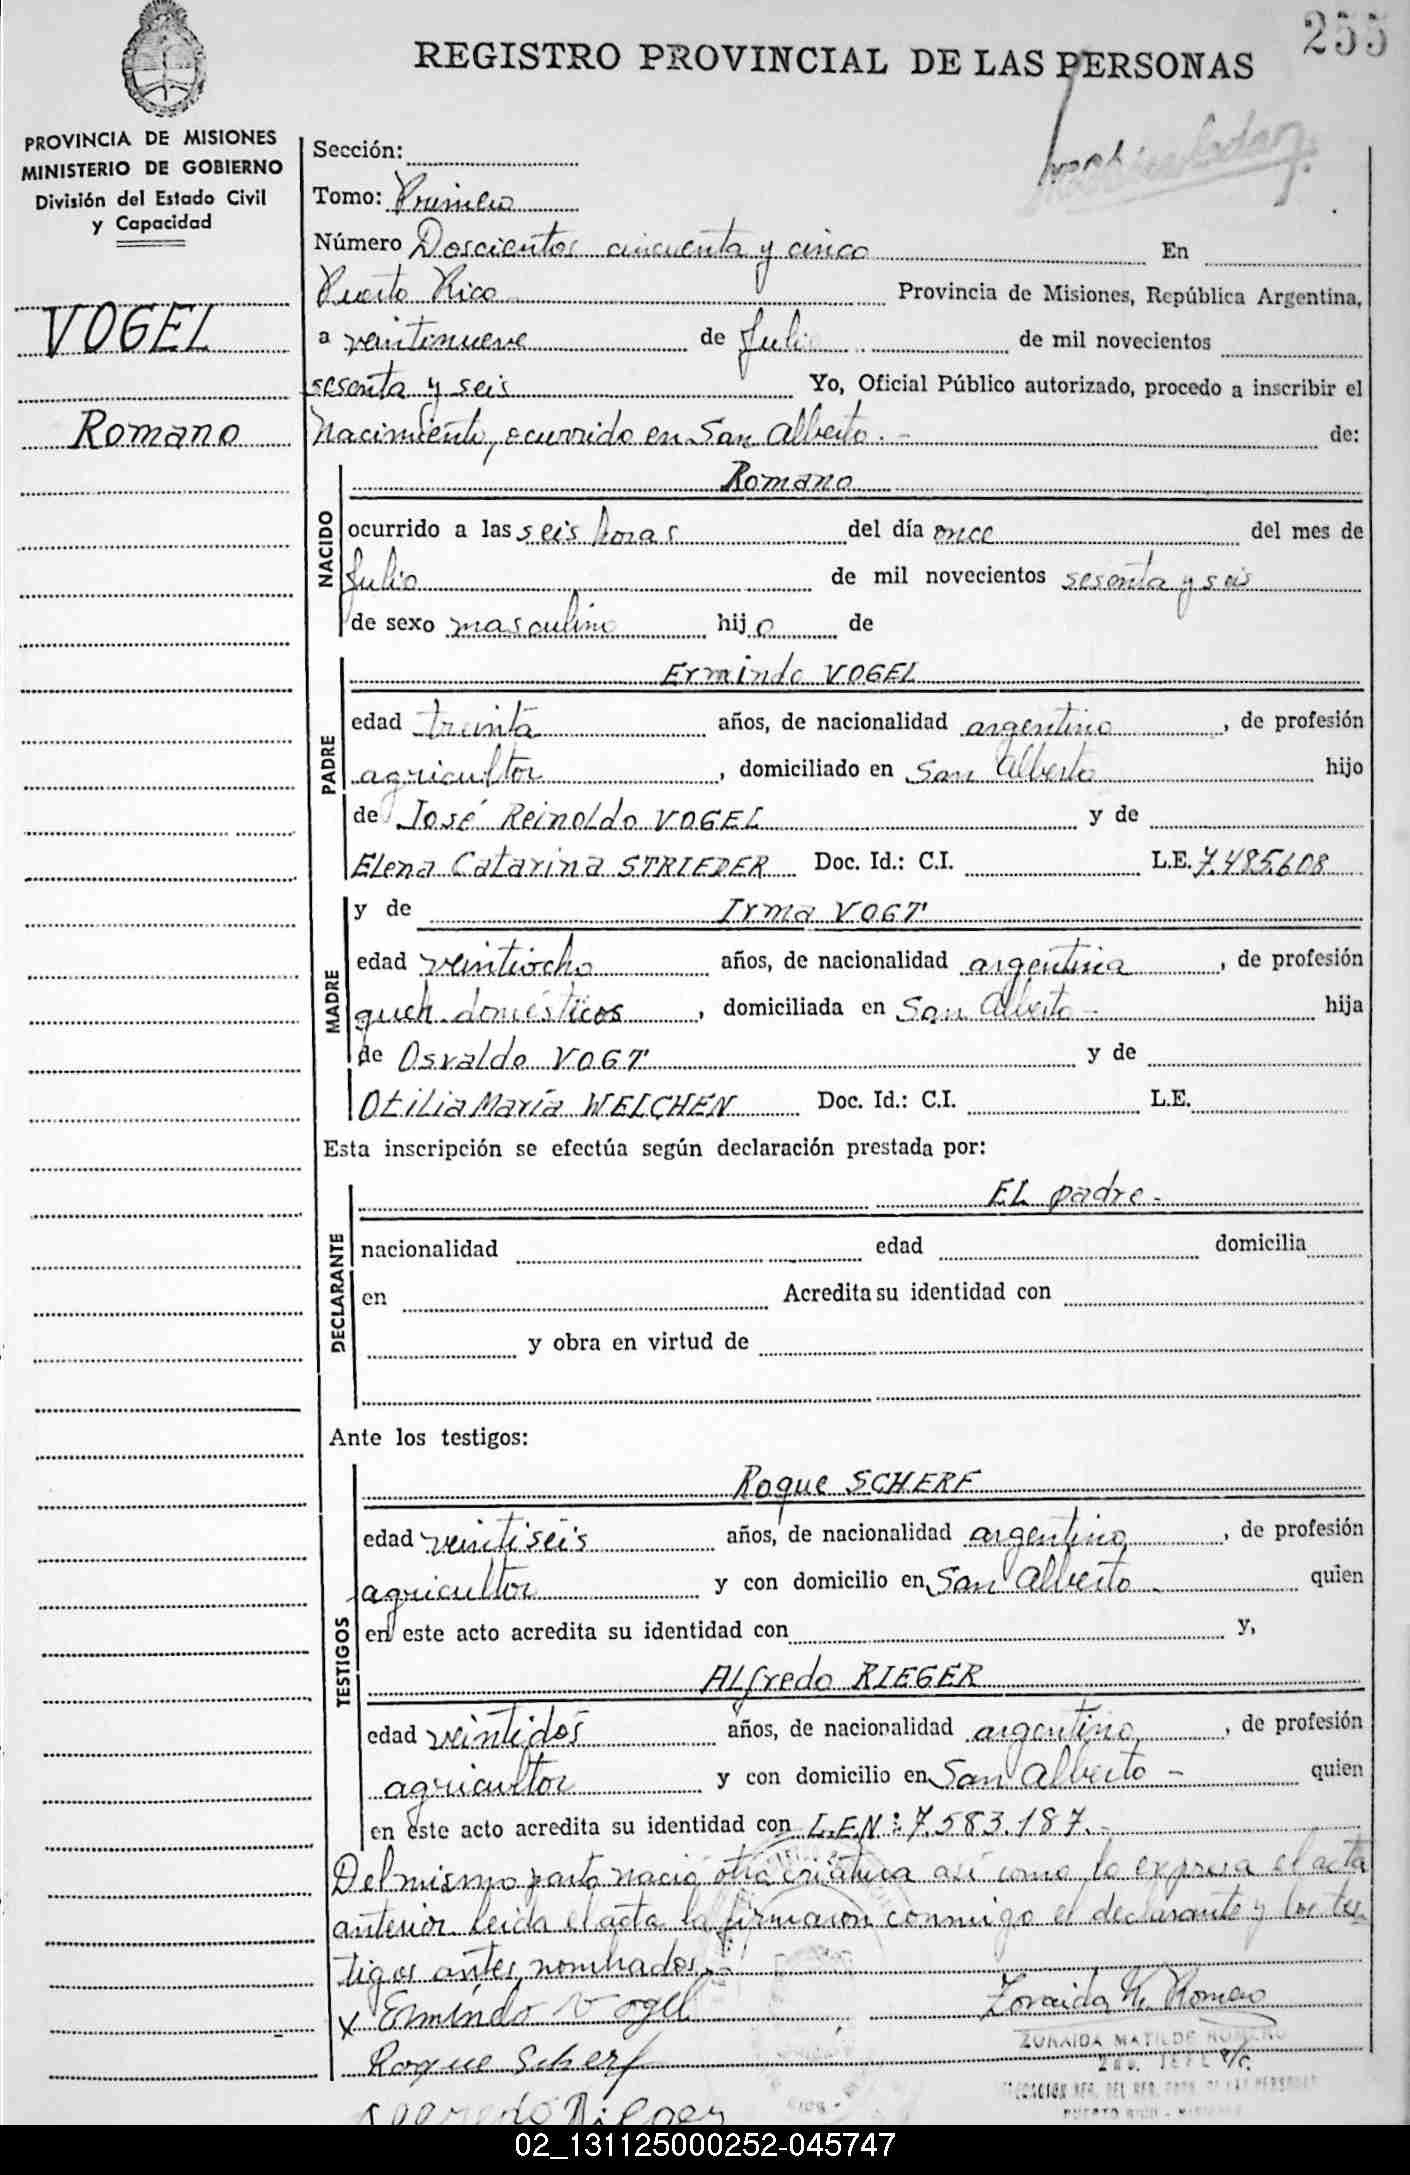 255
REGISTRO PROVINCIAL DE LAS PERSONAS
PROVINCIA DE MISIONES
MINISTERIO DE GOBIERNO
División del Estado Civil
y Capacidad
VOGEL
Romano
Sección:
Tomo: Primero
Número Doscientos cincuenta y cinco En
Puerto Rico Provincia de Misiones, República Argentina,
a veintinueve de Julio de mil novecientos
sesenta y seis Yo, Oficial Público autorizado, procedo a inscribir el
Nacimiento, ocurrido en San Alberto.- de:
NACIDO
Romano
ocurrido a las seis horas del día once del mes de
Julio de mil novecientos sesenta y seis
de sexo masculino hijo de
PADRE
Ermindo VOGEL
edad treinta años, de nacionalidad argentino, de profesión
agricultor, domiciliado en San Alberto hijo
de José Reinoldo VOGEL y de
Elena Catarina STRIEDER Doc. Id.: C.I. L.E. 7.485.608
MADRE
y de Irma VOGT
edad veintiocho años, de nacionalidad argentina, de profesión
queh. domésticos, domiciliada en San Alberto- hija
de Osvaldo VOGT y de
Otilia María WELCHEN Doc. Id.: C.I. L.E.
Esta inscripción se efectúa según declaración prestada por:
DECLARANTE
EL padre-
nacionalidad edad domicilia
en Acredita su identidad con
y obra en virtud de
Ante los testigos:
TESTIGOS
Roque SCHERF
edad veintiseis años, de nacionalidad argentino, de profesión
agricultor y con domicilio en San Alberto quien
en este acto acredita su identidad con y,
Alfredo RIEGER
edad veintidos años, de nacionalidad argentino, de profesión
agricultor y con domicilio en San Alberto - quien
en este acto acredita su identidad con L.E.N: 7.583.187.-
Del mismo parto nació otra criatura así como lo expresa el acta
anterior. Leida el acta la firmaron conmigo el declarante y los tes-
tigos antes nombrados.-
x Ermindo Vogel
Zoraida M. Romero
Roque Scherf
ZORAIDA MATILDE ROMERO
2do. JEFE
PUERTO RICO - MISIONES
Alfredo Rieger
02_131125000252-045747